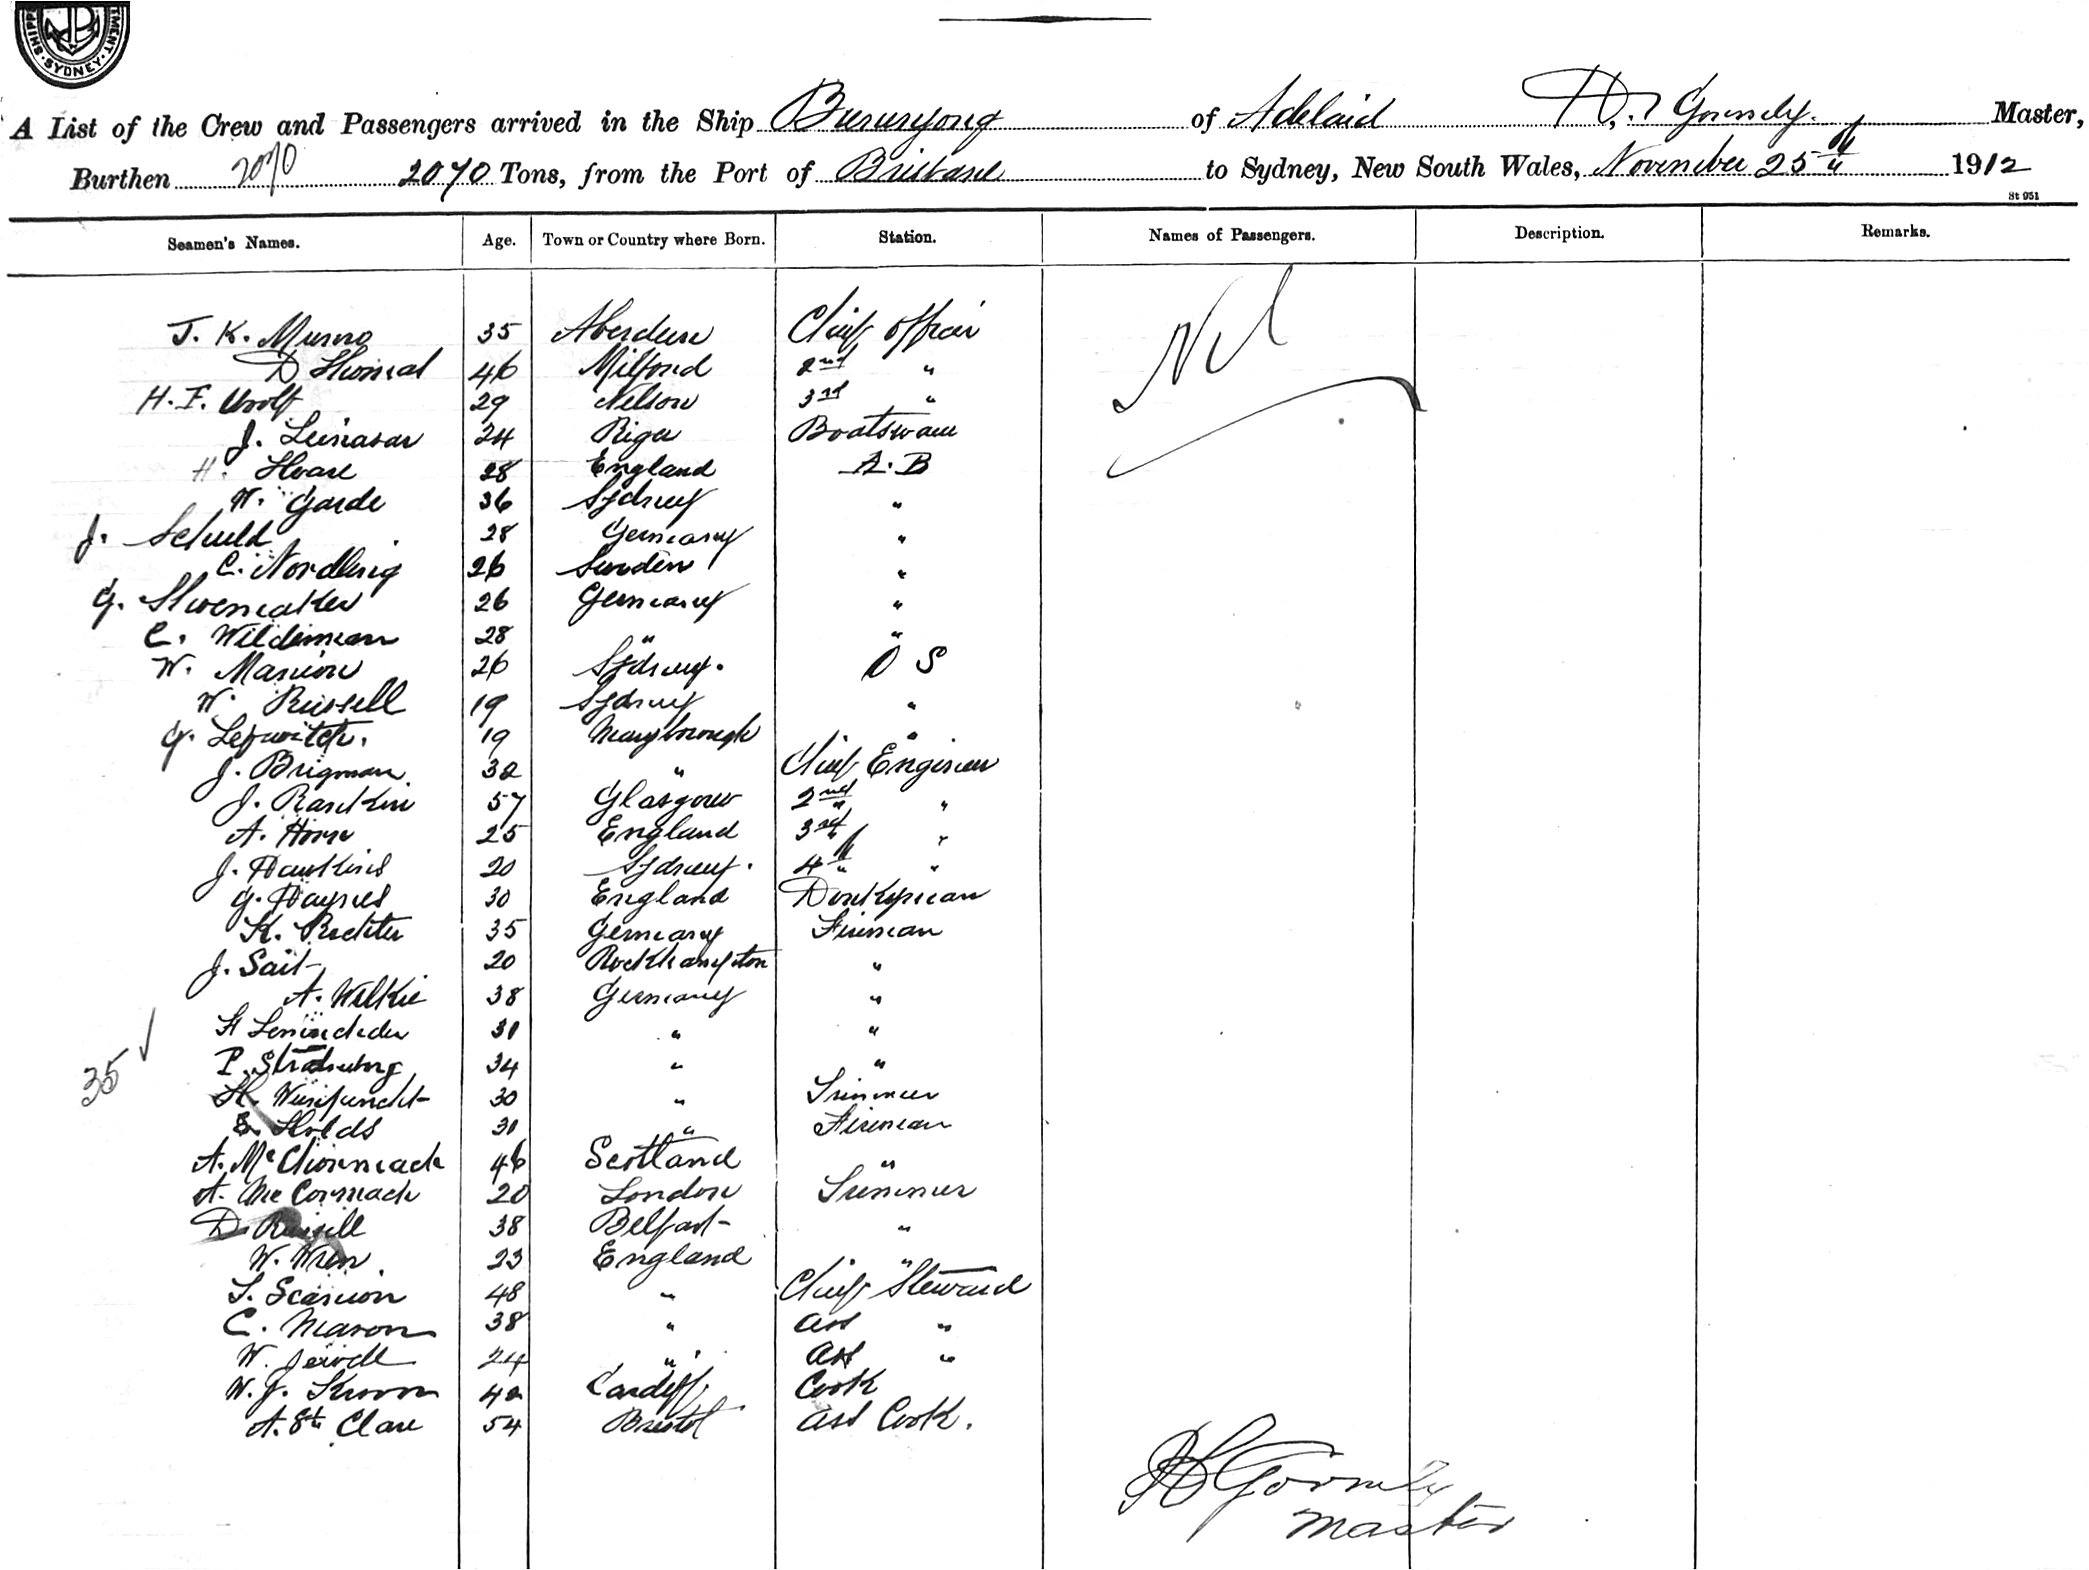 SHIPP MENT. SYDNEY.
A List of the Crew and Passengers arrived in the Ship Burunyong of Adelaid D. Gormely. Master,
Burthen 2070 2070 Tons, from the Port of Brisbane to Sydney, New South Wales, November 25th 1912
St 951
Seamen's Names. Age. Town or Country where Born. Station. Names of Passengers. Description. Remarks.
Nil
J. K. Munro 35 Aberdeen Chief Officer
D 46 Milford 2nd "
H. F. Wolf 29 Nelson 3rd "
J. 24 Riga Boatswain
H. Hoare 28 England A.B
W. Garde 36 Sydney "
J. Schuld 28 Germany "
C. Nordling 26 Sweden "
G. Shoemaker 26 Germany "
C. Wildeman 28 " "
W. Marion 26 Sydney. O S
W. Russell 19 Sydney "
G. Lefwitch. 19 Maryborough "
J. Brigman 32 " Chief Engineer
J. Rankin 57 Glasgow 2nd "
A. Horn 25 England 3rd "
J. Hawkins 20 Sydney. 4th "
G. Haynes 30 England Donkeyman
K. Richter 35 Germany Fireman
J. Sait 20 Rockhampton "
A. Wilkie 38 Germany "
H 31 " "
35
P. Strasburg 34 " "
H. 30 " Trimmer
Holds 31 " Fireman
A. McCormack 46 Scotland "
A. McCormack 20 London Trimmer
D Russell 38 Belfast "
W. Wren 23 England "
S. Scanion 48 " Chief Steward
C. Mason 38 " Ass "
W. Jewell 24 " Ass "
W. J. 42 Cardiff Cook
A. St Clare 54 Bristol Ass Cook.
Gormely
Master